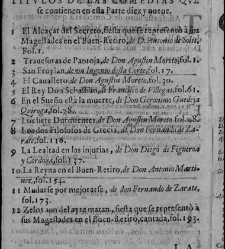 TITVLOS DE LAS COMEDIAS QVE
se contienen en esta Parte diez y nueve.
1 El Alcaçar del Secreto, fiesta que se representò à sus
Magestades en el Buen-Retiro, de D. Antonio de Solis,
Fol. 1.
2 Travesuras de Pantoja, de Don Agustin Moreto, fol.
3 San Froylan, de un Ingenio desta Corte, fol. 17.
4 El Cavallero, de Don Agustin Moreto, fol.
5 El Rey Don Sebastian, de Francisco de Villegas, fol. 61.
6 En el Sueño està la muerte, de Don Geronimo Guedeja
Quiroga, fol. 78.
7 Los siete Durmientes, de Don Agustin Moreto, fol. 98.
8 Los dos Filosofos de Grecia, de Don Fernando de Za-
rate, fol. 116.
9 La Lealtad en las injurias, de Don Diego de Figueroa
y Cordova, fol. 137.
10 La Reyna en el Buen-Retiro, de Don Antonio Marti-
nez, fol. 154.
11 Mudarse por mejorarse, de don Fernando de Zarate,
fol. 173.
12 Zelos aun del ayre matan, fiesta que se representò à
sus Magestades en el Buen-Retiro, cantada, fol. 193.